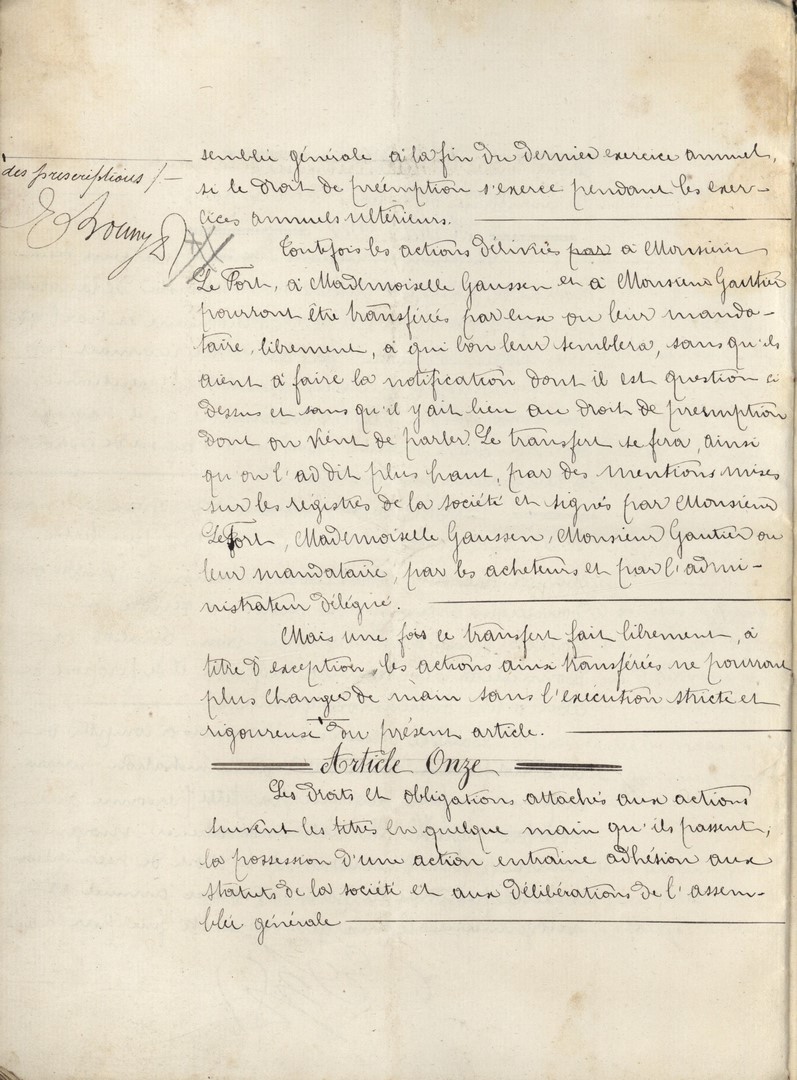 semblée générale à la fin du dernier exercice annuel,
si le droit de préemption s'exerce pendant les exer-
cices annuels ultérieurs.
des prescriptions /-
Toutefois les actions délivrées par à Monsieur
Le Fort, à Mademoiselle Gaussen et à Monsieur Gautier
pourront être transférées par eux ou leur manda-
taire, librement, à qui bon leur semblera, sans qu'ils
aient à faire la notification dont il est question ci
dessus et sans qu'il y ait lieu au droit de préemption
dont on vient de parler. Le transfert se fera, ainsi
qu'on l'a dit plus haut, par des mentions mises
sur les registres de la société et signés par Monsieur
Le Fort, Mademoiselle Gaussen, Monsieur Gautier ou
leur mandataire, par les acheteurs et par l'admi-
nistrateur délégué.
Mais une fois ce transfert fait librement, à
titre d'exception, les actions ainsi transférées ne pourront
plus changer de main sans l'exécution stricte et
rigoureuse du présent article.
Article Onze
Les droits et obligations attachés aux actions
suivent les titres en quelque main qu'ils passent,
la possession d'une action entraine adhésion aux
statuts de la société et aux délibérations de l'assem-
blée générale